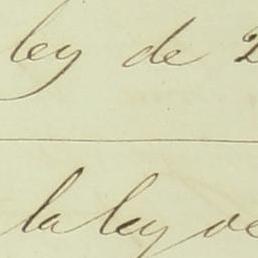 ley de 2
la ley de